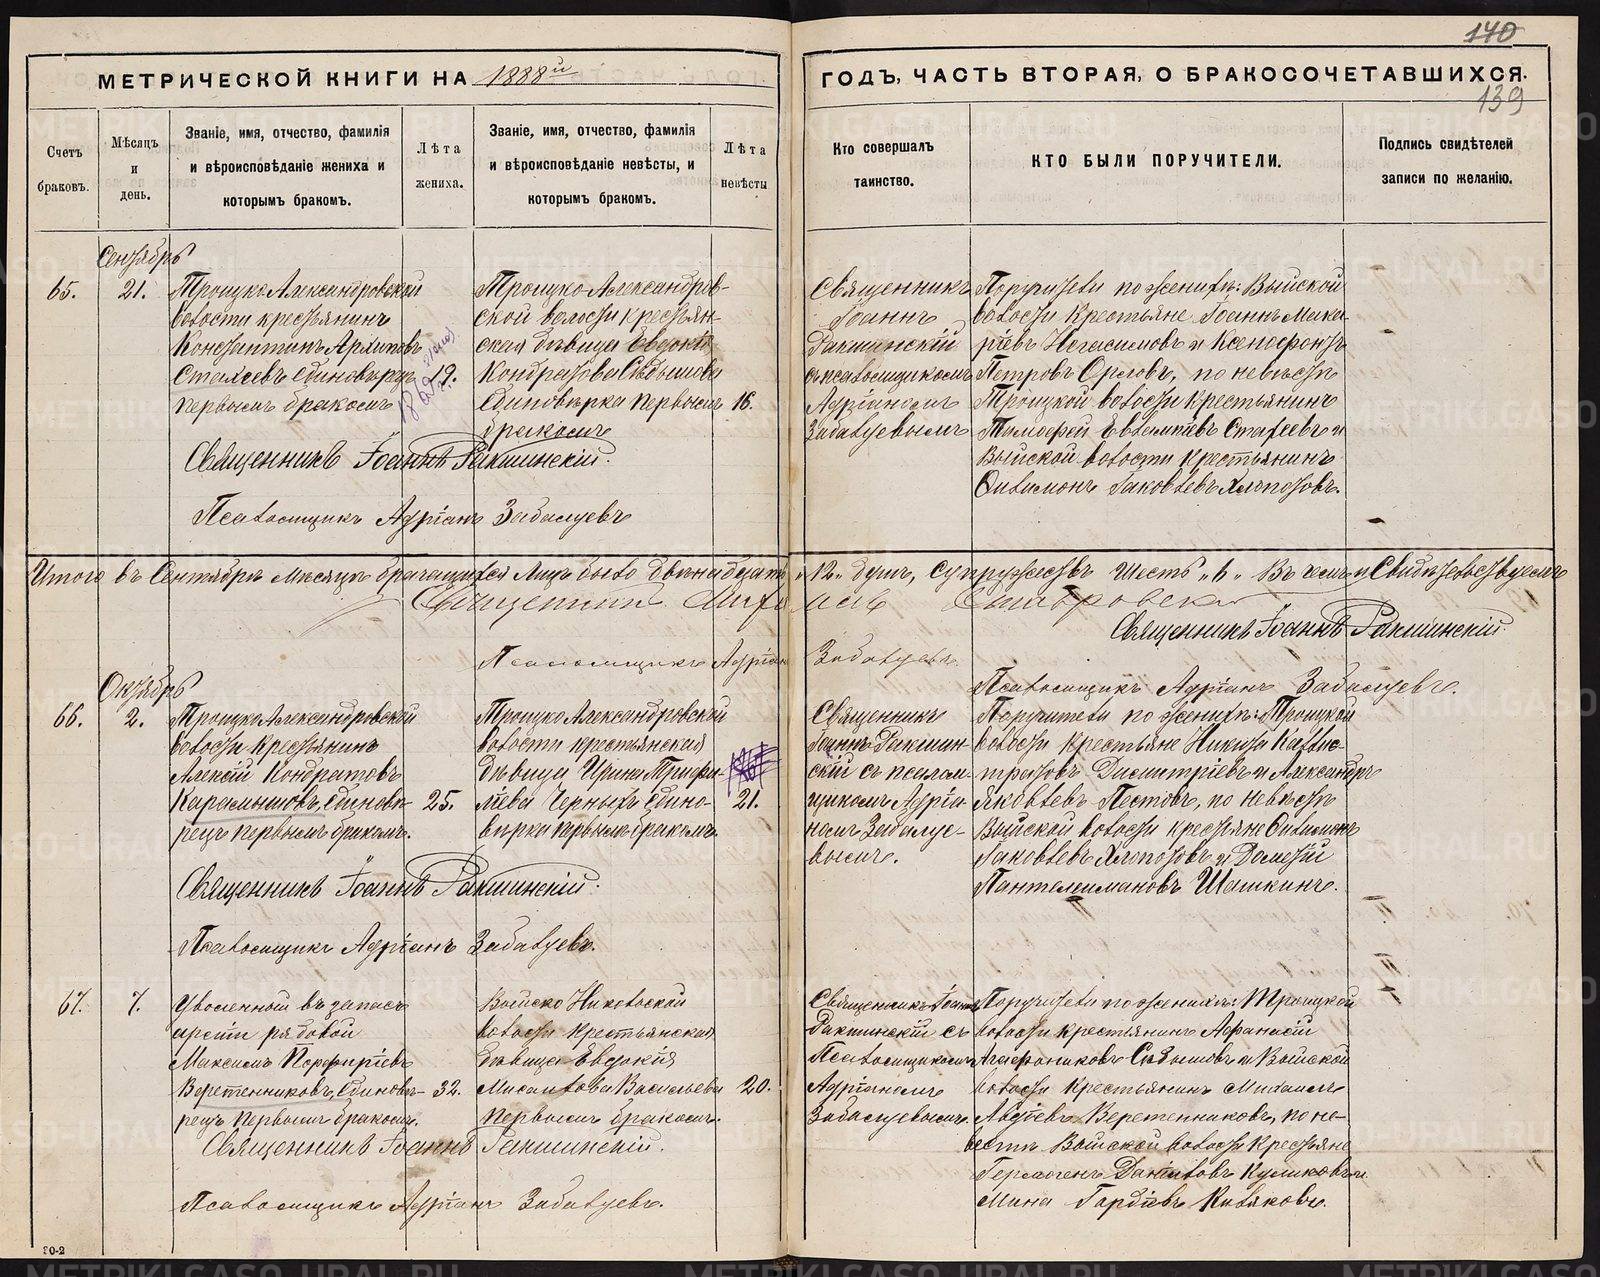 140
МЕТРИЧЕСКОЙ КНИГИ НА 1888й
ГОДЪ, ЧАСТЬ ВТОРАЯ, О БРАКОСОЧЕТАВШИХСЯ.
139
Счетъ
браковъ.
Мѣсяцъ
и
день.
Званіе, имя, отчество, фамилія
и вѣроисповѣданіе жениха и
которымъ бракомъ.
Лѣта
жениха.
Званіе, имя, отчество, фамилія
и вѣроисповѣданіе невѣсты, и
которымъ бракомъ.
Лѣта
невѣсты
Кто совершалъ
таинство.
КТО БЫЛИ ПОРУЧИТЕЛИ.
Подпись свидѣтелей
записи по желанію.
Сентябрь
65.
21.
Троицко Александровской
волости крестьянинъ
Константинъ Архиповъ
Статеевъ единовѣрецъ
первымъ бракомъ
19.
Троицко Александров-
ской волости крестьян-
ская дѣвица Евдокія
Кондратова
Единовѣрка первымъ
бракомъ
16.
Священникъ
Іоаннъ
Ракшинскій
съ псаломщикомъ
Адріаномъ
Забалуевымъ
Поручители по женихѣ: Выйской
волости крестьяне Іоаннъ Мака-
ріевъ Негасимовъ и Ксенофонтъ
Петровъ Орловъ, по невѣстѣ
Троицкой волости крестьянинъ
Тимофей Евлампіевъ Статеевъ и
Выйской волости крестьянинъ
Филимонъ Іаковлевъ Хлопотовъ.
Священникъ Іоаннъ Ракшинскій.
Псаломщикъ Адріанъ Забалуевъ
Итого въ Сентябрѣ мѣсяцѣ брачащихся лицъ было двѣнадцать „12„ душъ, супружествъ шесть „6„ Въ чемъ и Свидѣтельствуемъ
Священникъ
Священникъ Іоаннъ Ракшинскій.
Псаломщикъ Адріанъ Забалуевъ.
Псаломщикъ Адріанъ Забалуевъ.
Октябрь
66.
2.
Троицко Александровской
волости крестьянинъ
Алексій Кондратовъ
Карамышовъ, единовѣ-
рецъ первымъ бракомъ.
25.
Троицко Александровской
волости крестьянская
дѣвица Ирина Трифи-
ліева Черныхъ едино-
вѣрка первымъ бракомъ.
21.
Священникъ
Іоаннъ Ракшин-
скій съ псалом-
щикомъ Адріа-
номъ Забалуе-
вымъ.
Поручители по женихѣ: Троицкой
волости крестьяне Никита Каллис-
тратовъ Димитріевъ и Александръ
Яковлевъ Пестовъ, по невѣстѣ
Выйской волости крестьяне Филимонъ
Іаковлевъ Хлопотовъ и Дометій
Пантелеимановъ Шашкинъ.
Священникъ Іоаннъ Ракшинскій.
Псаломщикъ Адріанъ Забалуевъ.
67.
7.
Уволенный въ запасъ
арміи рядовой
Максимъ Порфиріевъ
Веретенниковъ, единовѣ-
рецъ первымъ бракомъ.
32.
Выйско Николаской
волости крестьянская
дѣвица Евдокія
Михаилова Васильева
первымъ бракомъ.
20.
Священникъ Іоаннъ
Ракшинскій съ
Псаломщикомъ
Адріаномъ
Забалуевымъ.
Поручители по женихѣ: Троицкой
волости крестьянинъ Афанасій
Агафониковъ и Выйской
волости крестьянинъ Михаилъ
Авдіевъ Веретенниковъ, по не-
вѣстѣ Выйской волости крестьяне
Гермогенъ Даниловъ Куликовъ и
Мина Гордіевъ
Священникъ Іоаннъ Ракшинскій.
Псаломщикъ Адріанъ Забалуевъ.
20-2
METRIKI.CASO-URAL.RU